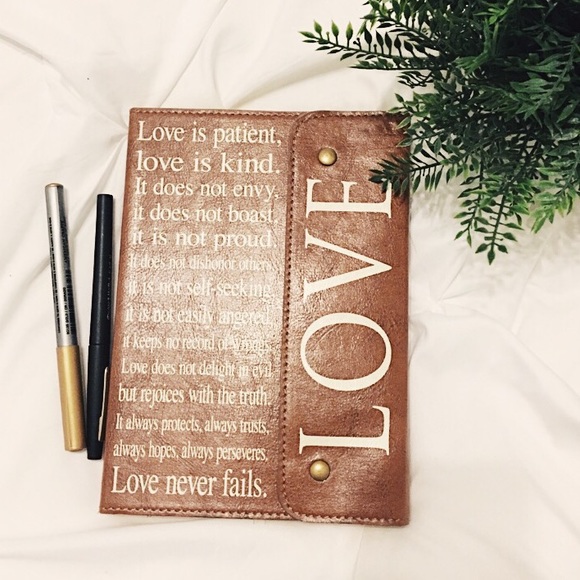 Love is patient,
love is kind.
It does not envy,
it does not boast,
it is not proud.
It does not dishonor others,
it is not self-seeking,
it is not easily angered,
it keeps no record of wrongs.
Love does not delight in evil
but rejoices with the truth.
It always protects, always trusts,
always hopes, always perseveres.
Love never fails.
LOVE